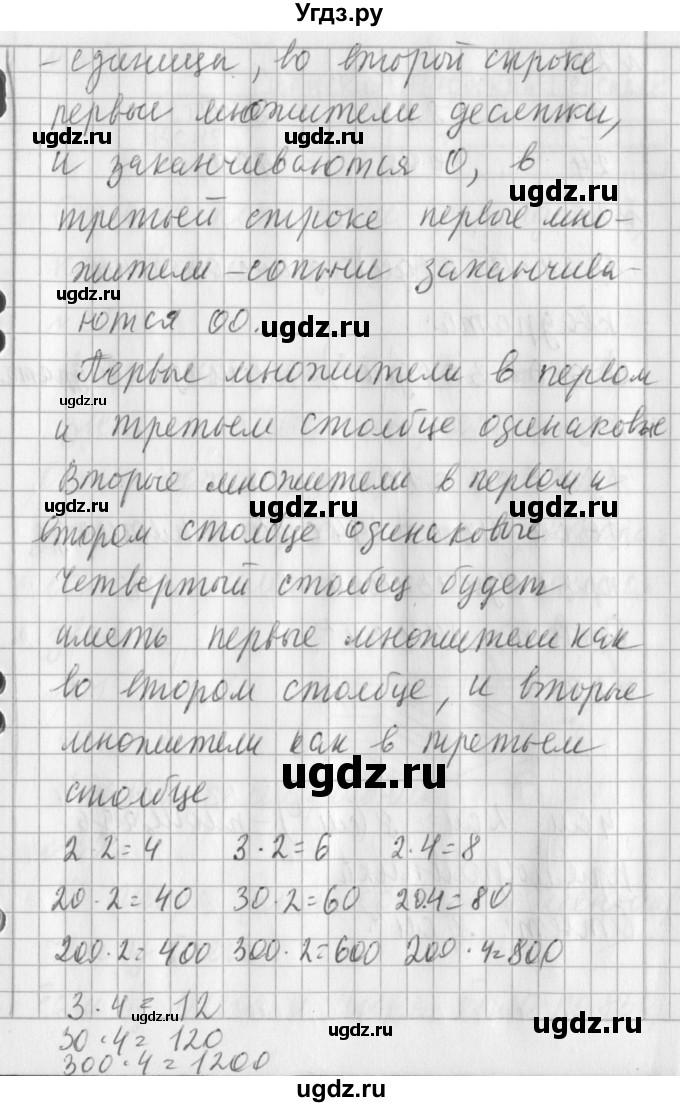 Угдз.ру
- единица, во второй строке
первые множители десятки,
и заканчиваются 0, в
третьей строке первые мно-
жители - сотни заканчива-
ются 00.
Первые множители в первом
и третьем столбце одинаковые
Вторые множители в первом и
втором столбце одинаковые
Четвертый столбец будет
иметь первые множители как
во втором столбце, и вторые
множители как в третьем
столбце
2·2=4 3·2=6 2·4=8
20·2=40 30·2=60 20·4=80
200·2=400 300·2=600 200·4=800
3·4=12
30·4=120
300·4=1200
ugdz.ru